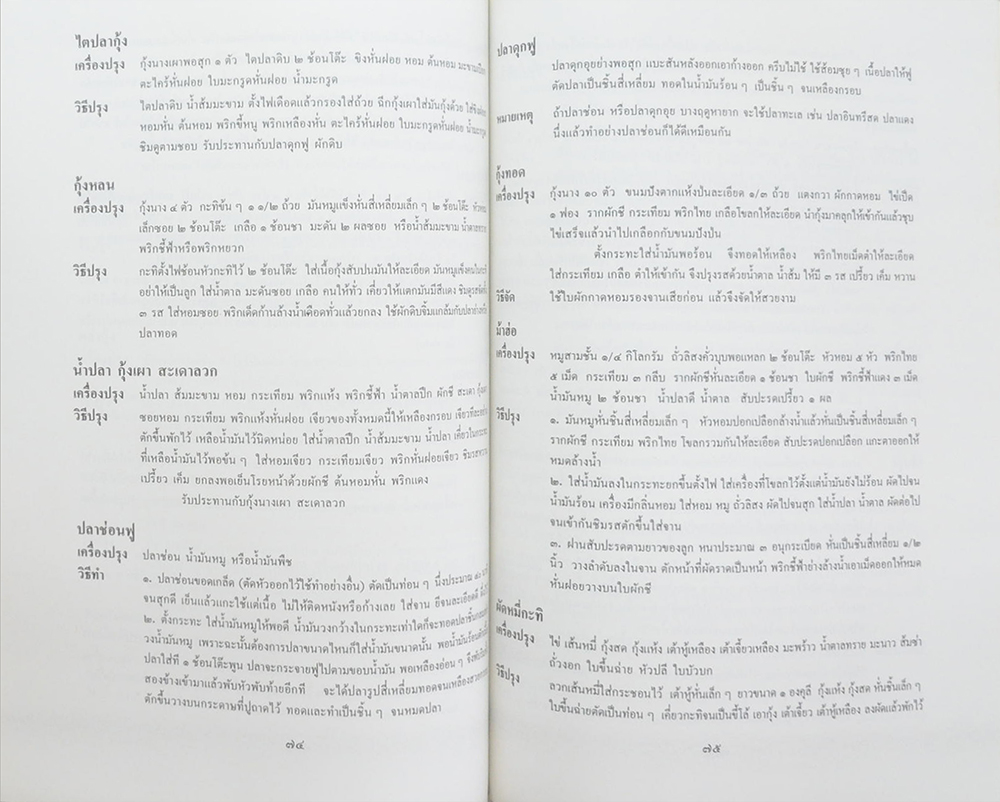 ไตปลากุ้ง
เครื่องปรุง กุ้งนางเผาพอสุก ๑ ตัว ไตปลาดิบ ๒ ช้อนโต๊ะ ขิงหั่นฝอย หอม ต้นหอม มะขามเปียก
ตะไคร้หั่นฝอย ใบมะกรูดหั่นฝอย น้ำมะกรูด
วิธีปรุง ไตปลาดิบ น้ำส้มมะขาม ตั้งไฟเดือดแล้วกรองใส่ถ้วย ฉีกกุ้งเผาใส่มันกุ้งด้วย ใส่ขิง
หอมหั่น ต้นหอม พริกขี้หนู พริกเหลืองหั่น ตะไคร้หั่นฝอย ใบมะกรูดหั่นฝอย น้ำมะกรูด
ชิมดูตามชอบ รับประทานกับปลาดุกฟู ผักดิบ
กุ้งหลน
เครื่องปรุง กุ้งนาง ๔ ตัว กะทิข้น ๆ ๑ ๑/๒ ถ้วย มันหมูแข็งหั่นสี่เหลี่ยมเล็ก ๆ ๒ ช้อนโต๊ะ หัวหอม
เล็กซอย ๒ ช้อนโต๊ะ เกลือ ๑ ช้อนชา มะดัน ๒ ผลซอย หรือน้ำส้มมะขาม น้ำตาลทราย
พริกชี้ฟ้าหรือพริกหยวก
วิธีปรุง กะทิตั้งไฟช้อนหัวกะทิไว้ ๒ ช้อนโต๊ะ ใส่เนื้อกุ้งสับปนมันให้ละเอียด มันหมูแข็ง
อย่าให้เป็นลูก ใส่น้ำตาล มะดันซอย เกลือ คนให้ทั่ว เคี่ยวให้แตกมันมีสีแดง ชิมดูรส
๓ รส ใส่หอมซอย พริกเด็ดก้านล้างน้ำเดือดทั่วแล้วยกลง ใช้ผักดิบจิ้มแกล้มกับปลาย่างหรือ
ปลาทอด
น้ำปลา กุ้งเผา สะเดาลวก
เครื่องปรุง น้ำปลา ส้มมะขาม หอม กระเทียม พริกแห้ง พริกชี้ฟ้า น้ำตาลปึก ผักชี สะเดา กุ้งเผา
วิธีปรุง ซอยหอม กระเทียม พริกแห้งหั่นฝอย เจียวของทั้งหมดนี้ให้เหลืองกรอบ เจียวทีละอย่าง
ตักขึ้นพักไว้ เหลือน้ำมันไว้นิดหน่อย ใส่น้ำตาลปึก น้ำส้มมะขาม น้ำปลา เคี่ยวในกระทะ
ที่เหลือน้ำมันไว้พอข้น ๆ ใส่หอมเจียว กระเทียมเจียว พริกหั่นฝอยเจียว ชิมรสหวาน
เปรี้ยว เค็ม ยกลงพอเย็นโรยหน้าด้วยผักชี ต้นหอมหั่น พริกแดง
รับประทานกับกุ้งนางเผา สะเดาลวก
ปลาช่อนฟู
เครื่องปรุง ปลาช่อน น้ำมันหมู หรือน้ำมันพืช
วิธีทำ ๑. ปลาช่อนขอดเกล็ด (ตัดหัวออกไว้ใช้ทำอย่างอื่น) ตัดเป็นท่อน ๆ นึ่งประมาณ ๔๐
จนสุกดี เย็นแล้วแกะใช้แต่เนื้อ ไม่ให้ติดหนังหรือก้างเลย ใส่จาน ยีจนละเอียดดี
๒. ตั้งกระทะ ใส่น้ำมันหมูให้พอดี น้ำมันวงกว้างในกระทะเท่าใดก็จะทอดปลาชิ้น
วงน้ำมันหมู เพราะฉะนั้นต้องการปลาขนาดไหนก็ใส่น้ำมันขนาดนั้น พอน้ำมันร้อน
ปลาใส่ที่ ๑ ช้อนโต๊ะพูน ปลาจะกระจายฟูไปตามขอบน้ำมัน พอเหลืองอ่อน ๆ จึง
สองข้างเข้ามาแล้วพับหัวพับท้ายอีกที จะได้ปลารูปสี่เหลี่ยมทอดจนเหลือง
ตักขึ้นวางบนกระดาษที่ปูถาดไว้ ทอดและทำเป็นชิ้น ๆ จนหมดปลา
๗๔
ปลาดุกฟู
ปลาดุกอุยย่างพอสุก แบะสันหลังออกเอาก้างออก ครีบไม่ใช้ ใช้ส้อมขุย ๆ เนื้อปลาให้ฟู
ตัดปลาเป็นชิ้นสี่เหลี่ยม ทอดในน้ำมันร้อน ๆ เป็นชิ้น ๆ จนเหลืองกรอบ
หมายเหตุ ถ้าปลาช่อน หรือปลาดุกอุย บางฤดูหายาก จะใช้ปลาทะเล เช่น ปลาอินทรีสด ปลาแดง
นึ่งแล้วทำอย่างปลาช่อนก็ได้ดีเหมือนกัน
กุ้งทอด
เครื่องปรุง กุ้งนาง ๑๐ ตัว ขนมปังตากแห้งป่นละเอียด ๑/๓ ถ้วย แตงกวา ผักกาดหอม ไข่เป็ด
๑ ฟอง รากผักชี กระเทียม พริกไทย เกลือโขลกให้ละเอียด นำกุ้งมาคลุกให้เข้ากันแล้วชุบ
ไข่เสร็จแล้วนำไปเกลือกกับขนมปังป่น
ตั้งกระทะใส่น้ำมันพอร้อน จึงทอดให้เหลือง พริกไทยเม็ดตำให้ละเอียด
ใส่กระเทียม เกลือ ตำให้เข้ากัน จึงปรุงรสด้วยน้ำตาล น้ำส้ม ให้มี ๓ รส เปรี้ยว เค็ม หวาน
วิธีจัด ใช้ใบผักกาดหอมรองจานเสียก่อน แล้วจึงจัดให้สวยงาม
ม้าฮ่อ
เครื่องปรุง หมูสามชั้น ๑/๔ กิโลกรัม ถั่วลิสงคั่วบุบพอแหลก ๒ ช้อนโต๊ะ หัวหอม ๕ หัว พริกไทย
๕ เม็ด กระเทียม ๓ กลีบ รากผักชีหั่นละเอียด ๑ ช้อนชา ใบผักชี พริกชี้ฟ้าแดง ๓ เม็ด
น้ำมันหมู ๒ ช้อนชา น้ำปลาดี น้ำตาล สับปะรดเปรี้ยว ๑ ผล
วิธีปรุง ๑. มันหมูหั่นชิ้นสี่เหลี่ยมเล็ก ๆ หัวหอมปอกเปลือกล้างน้ำแล้วหั่นเป็นชิ้นสี่เหลี่ยมเล็ก ๆ
รากผักชี กระเทียม พริกไทย โขลกรวมกันให้ละเอียด สับปะรดปอกเปลือก แกะตาออกให้
หมดล้างน้ำ
๒. ใส่น้ำมันลงในกระทะยกขึ้นตั้งไฟ ใส่เครื่องที่โขลกไว้ตั้งแต่น้ำมันยังไม่ร้อน ผัดไปจน
น้ำมันร้อน เครื่องมีกลิ่นหอม ใส่หอม หมู ถั่วลิสง ผัดไปจนสุก ใส่น้ำปลา น้ำตาล ผัดต่อไป
จนเข้ากันชิมรสตักขึ้นใส่จาน
๓. ฝานสับปะรดตามยาวของลูก หนาประมาณ ๓ อนุกระเบียด หั่นเป็นชิ้นสี่เหลี่ยม ๑/๒
นิ้ว วางลำดับลงในจาน ตักหน้าที่ผัดราดเป็นหน้า พริกชี้ฟ้าย่างล้างน้ำเอาเม็ดออกให้หมด
หั่นฝอยวางบนใบผักชี
ผัดหมี่กะทิ
เครื่องปรุง ไข่ เส้นหมี่ กุ้งสด กุ้งแห้ง เต้าหู้เหลือง เต้าเจี้ยวเหลือง มะพร้าว น้ำตาลทราย มะนาว ส้มซ่า
ถั่วงอก ใบขึ้นฉ่าย หัวปลี ใบบัวบก
วิธีปรุง ลวกเส้นหมี่ใส่กระชอนไว้ เต้าหู้หั่นเล็ก ๆ ยาวขนาด ๑ องคุลี กุ้งแห้ง กุ้งสด หั่นชิ้นเล็ก ๆ
ใบขึ้นฉ่ายตัดเป็นท่อน ๆ เคี่ยวกะทิจนเป็นขี้โล้ เอากุ้ง เต้าเจี้ยว เต้าหู้เหลือง ลงผัดแล้วพักไว้
๗๕